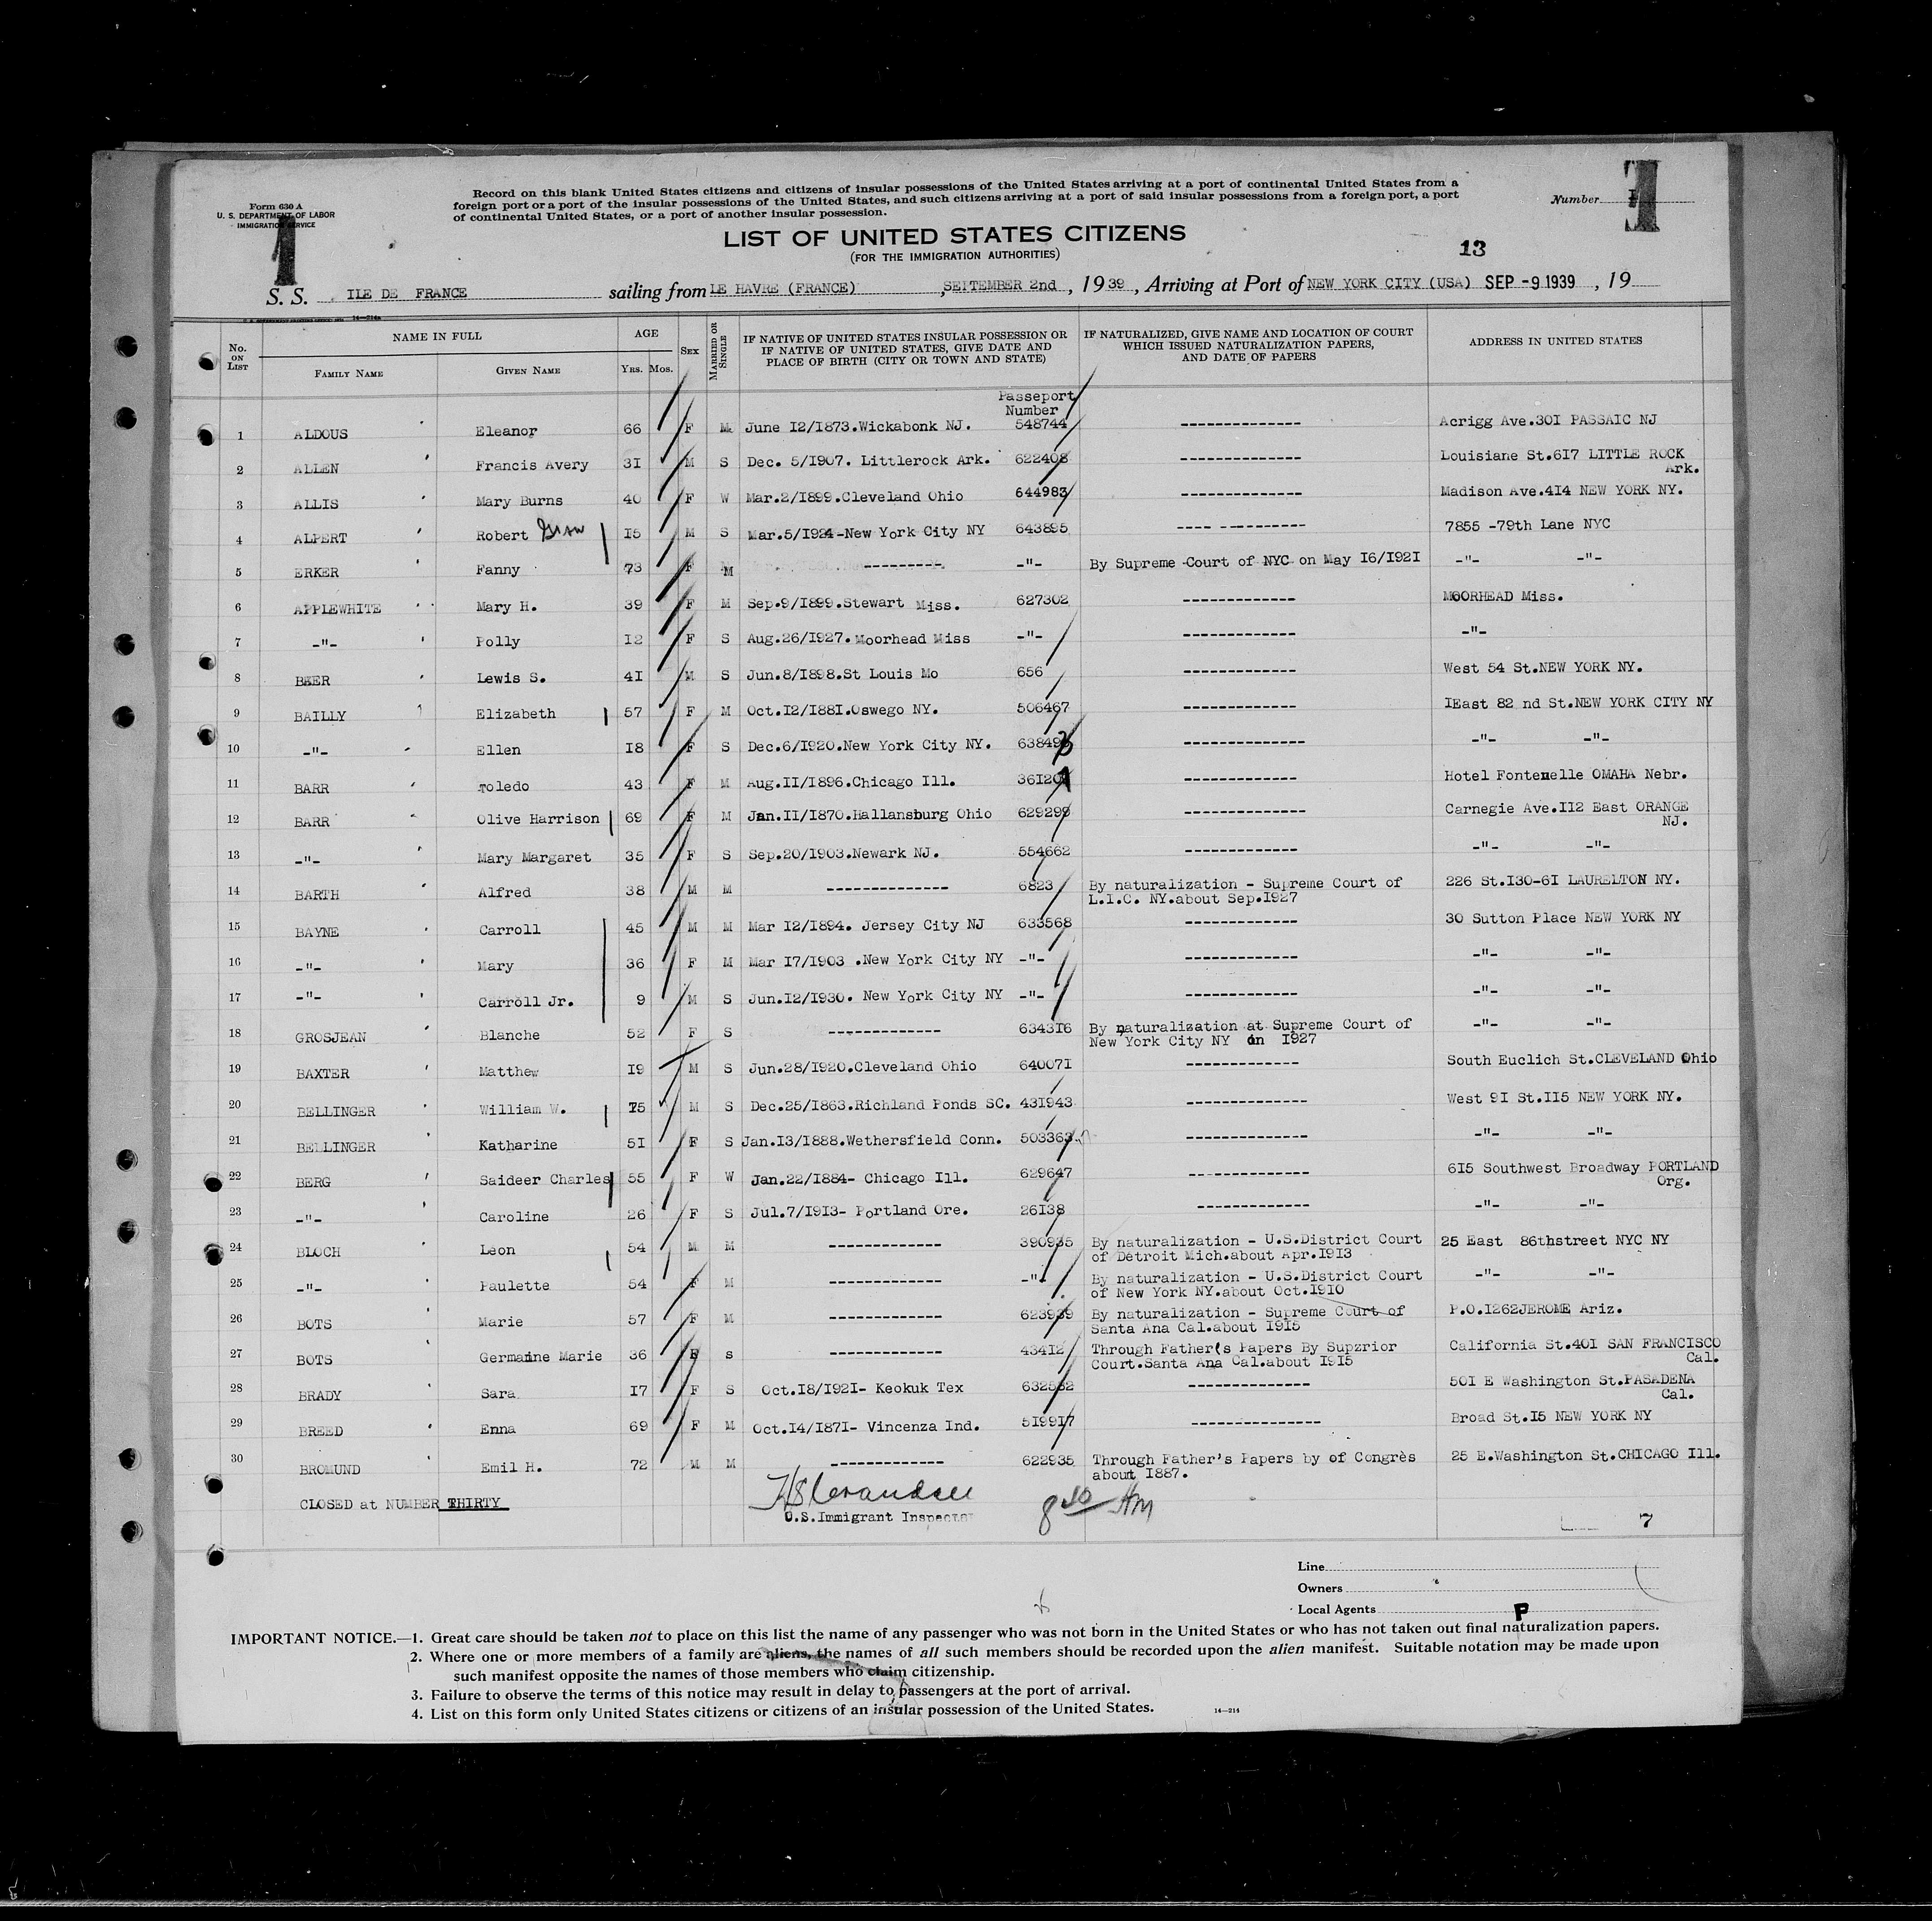 Form 630 A
U. S. DEPARTMENT OF LABOR
IMMIGRATION SERVICE
1
Record on this blank United States citizens and citizens of insular possessions of the United States arriving at a port of continental United States from a
foreign port or a port of the insular possessions of the United States, and such citizens arriving at a port of said insular possessions from a foreign port, a port
of continental United States, or a port of another insular possession.
Number 1
LIST OF UNITED STATES CITIZENS
(FOR THE IMMIGRATION AUTHORITIES)
13
S. S. ILE DE FRANCE sailing from LE HAVRE (FRANCE), SEPTEMBER 2nd, 1939, Arriving at Port of NEW YORK CITY (USA) SEP -9 1939, 19
No. ON LIST NAME IN FULL FAMILY NAME GIVEN NAME AGE YRS. MOS. SEX MARRIED OR SINGLE IF NATIVE OF UNITED STATES INSULAR POSSESSION OR IF NATIVE OF UNITED STATES, GIVE DATE AND PLACE OF BIRTH (CITY OR TOWN AND STATE) IF NATURALIZED, GIVE NAME AND LOCATION OF COURT WHICH ISSUED NATURALIZATION PAPERS, AND DATE OF PAPERS ADDRESS IN UNITED STATES
Passeport
Number
1 ALDOUS Eleanor 66 F M June I2/I873.Wickabonk NJ. 548744 -------------- Acrigg Ave.30I PASSAIC NJ
2 ALLEN Francis Avery 3I M S Dec. 5/I907. Littlerock Ark. 622408 -------------- Louisiane St.6I7 LITTLE ROCK
Ark.
3 ALLIS Mary Burns 40 F W Mar.2/I899.Cleveland Ohio 644983 -------------- Madison Ave.4I4 NEW YORK NY.
4 ALPERT Robert I5 M S Mar.5/I924-New York City NY 643895 ---- ---------- 7855 -79th Lane NYC
5 ERKER Fanny 73 F M --------- -"- By Supreme Court of NYC on May I6/I92I -"- -"-
6 APPLEWHITE Mary H. 39 F M Sep.9/I899.Stewart Miss. 627302 ------------- MOORHEAD Miss.
7 -"- Polly I2 F S Aug.26/I927.Moorhead Miss -"- ------------- -"-
8 BEER Lewis S. 4I M S Jun.8/I898.St Louis Mo 656 ------------- West 54 St.NEW YORK NY.
9 BAILLY Elizabeth 57 F M Oct.I2/I88I.Oswego NY. 506467 ------------- IEast 82 nd St.NEW YORK CITY NY
10 -"- Ellen I8 F S Dec.6/I920.New York City NY. 638493 -------------- -"- -"-
11 BARR Toledo 43 F M Aug.II/I896.Chicago Ill. 36I201 ------------- Hotel Fontenelle OMAHA Nebr.
12 BARR Olive Harrison 69 F M Jan.II/I870.Hallansburg Ohio 629299 -------------- Carnegie Ave.II2 East ORANGE
NJ.
13 -"- Mary Margaret 35 F S Sep.20/I903.Newark NJ. 554662 ------------- -"- -"-
14 BARTH Alfred 38 M M -------------- 6823 By naturalization - Supreme Court of 226 St.I30-6I LAURELTON NY.
L.I.C. NY.about Sep.I927
15 BAYNE Carroll 45 M M Mar I2/I894. Jersey City NJ 633568 ------------- 30 Sutton Place NEW YORK NY
16 -"- Mary 36 F M Mar I7/I903 .New York City NY -"- ------------- -"- -"-
17 -"- Carroll Jr. 9 M S Jun.I2/I930. New York City NY -"- ------------- -"- -"-
18 GROSJEAN Blanche 52 F S ------------- 6343I6 By naturalization at Supreme Court of -"- -"-
New York City NY in I927
19 BAXTER Matthew I9 M S Jun.28/I920.Cleveland Ohio 64007I ------------- South Euclich St.CLEVELAND Ohio
20 BELLINGER William W. 75 M S Dec.25/I863.Richland Ponds SC. 43I943 -------------- West 9I St.II5 NEW YORK NY.
21 BELLINGER Katharine 5I F S Jan.I3/I888.Wethersfield Conn. 503363 -------------- -"- -"-
22 BERG Saideer Charles 55 F W Jan.22/I884- Chicago Ill. 629647 -------------- 6I5 Southwest Broadway PORTLAND
Org.
23 -"- Caroline 26 F S Jul.7/I9I3- Portland Ore. 26I38 ------------- -"- -"-
24 BLOCH Leon 54 M M ------------- 390935 By naturalization - U.S.District Court 25 East 86thstreet NYC NY
of Detroit Mich.about Apr.I9I3
25 -"- Paulette 54 F M ------------- -"- By naturalization - U.S.District Court -"- -"-
of New York NY.about Oct.I9I0
26 BOTS Marie 57 F M ------------- 623939 By naturalization - Supreme Court of P.O.I262JEROME Ariz.
Santa Ana Cal.about I9I5
27 BOTS Germaine Marie 36 F s ------------- 434I2 Through Father's Papers By Supzrior California St.40I SAN FRANCISCO
Court.Santa Ana Cal.about I9I5 Cal.
28 BRADY Sara I7 F S Oct.I8/I92I- Keokuk Tex 632552 -------------- 50I E Washington St.PASADENA
Cal.
29 BREED Enna 69 F M Oct.I4/I87I- Vincenza Ind. 5I99I7 --------------- Broad St.I5 NEW YORK NY
30 BROMUND Emil H. 72 M M ------------- 622935 Through Father's Papers by of Congrès 25 E.Washington St.CHICAGO Ill.
about I887.
CLOSED at NUMBER THIRTY
U.S.Immigrant Inspector
7
Line
Owners
Local Agents P
IMPORTANT NOTICE.—1. Great care should be taken not to place on this list the name of any passenger who was not born in the United States or who has not taken out final naturalization papers.
2. Where one or more members of a family are aliens, the names of all such members should be recorded upon the alien manifest. Suitable notation may be made upon
such manifest opposite the names of those members who claim citizenship.
3. Failure to observe the terms of this notice may result in delay to passengers at the port of arrival.
4. List on this form only United States citizens or citizens of an insular possession of the United States.
14—214